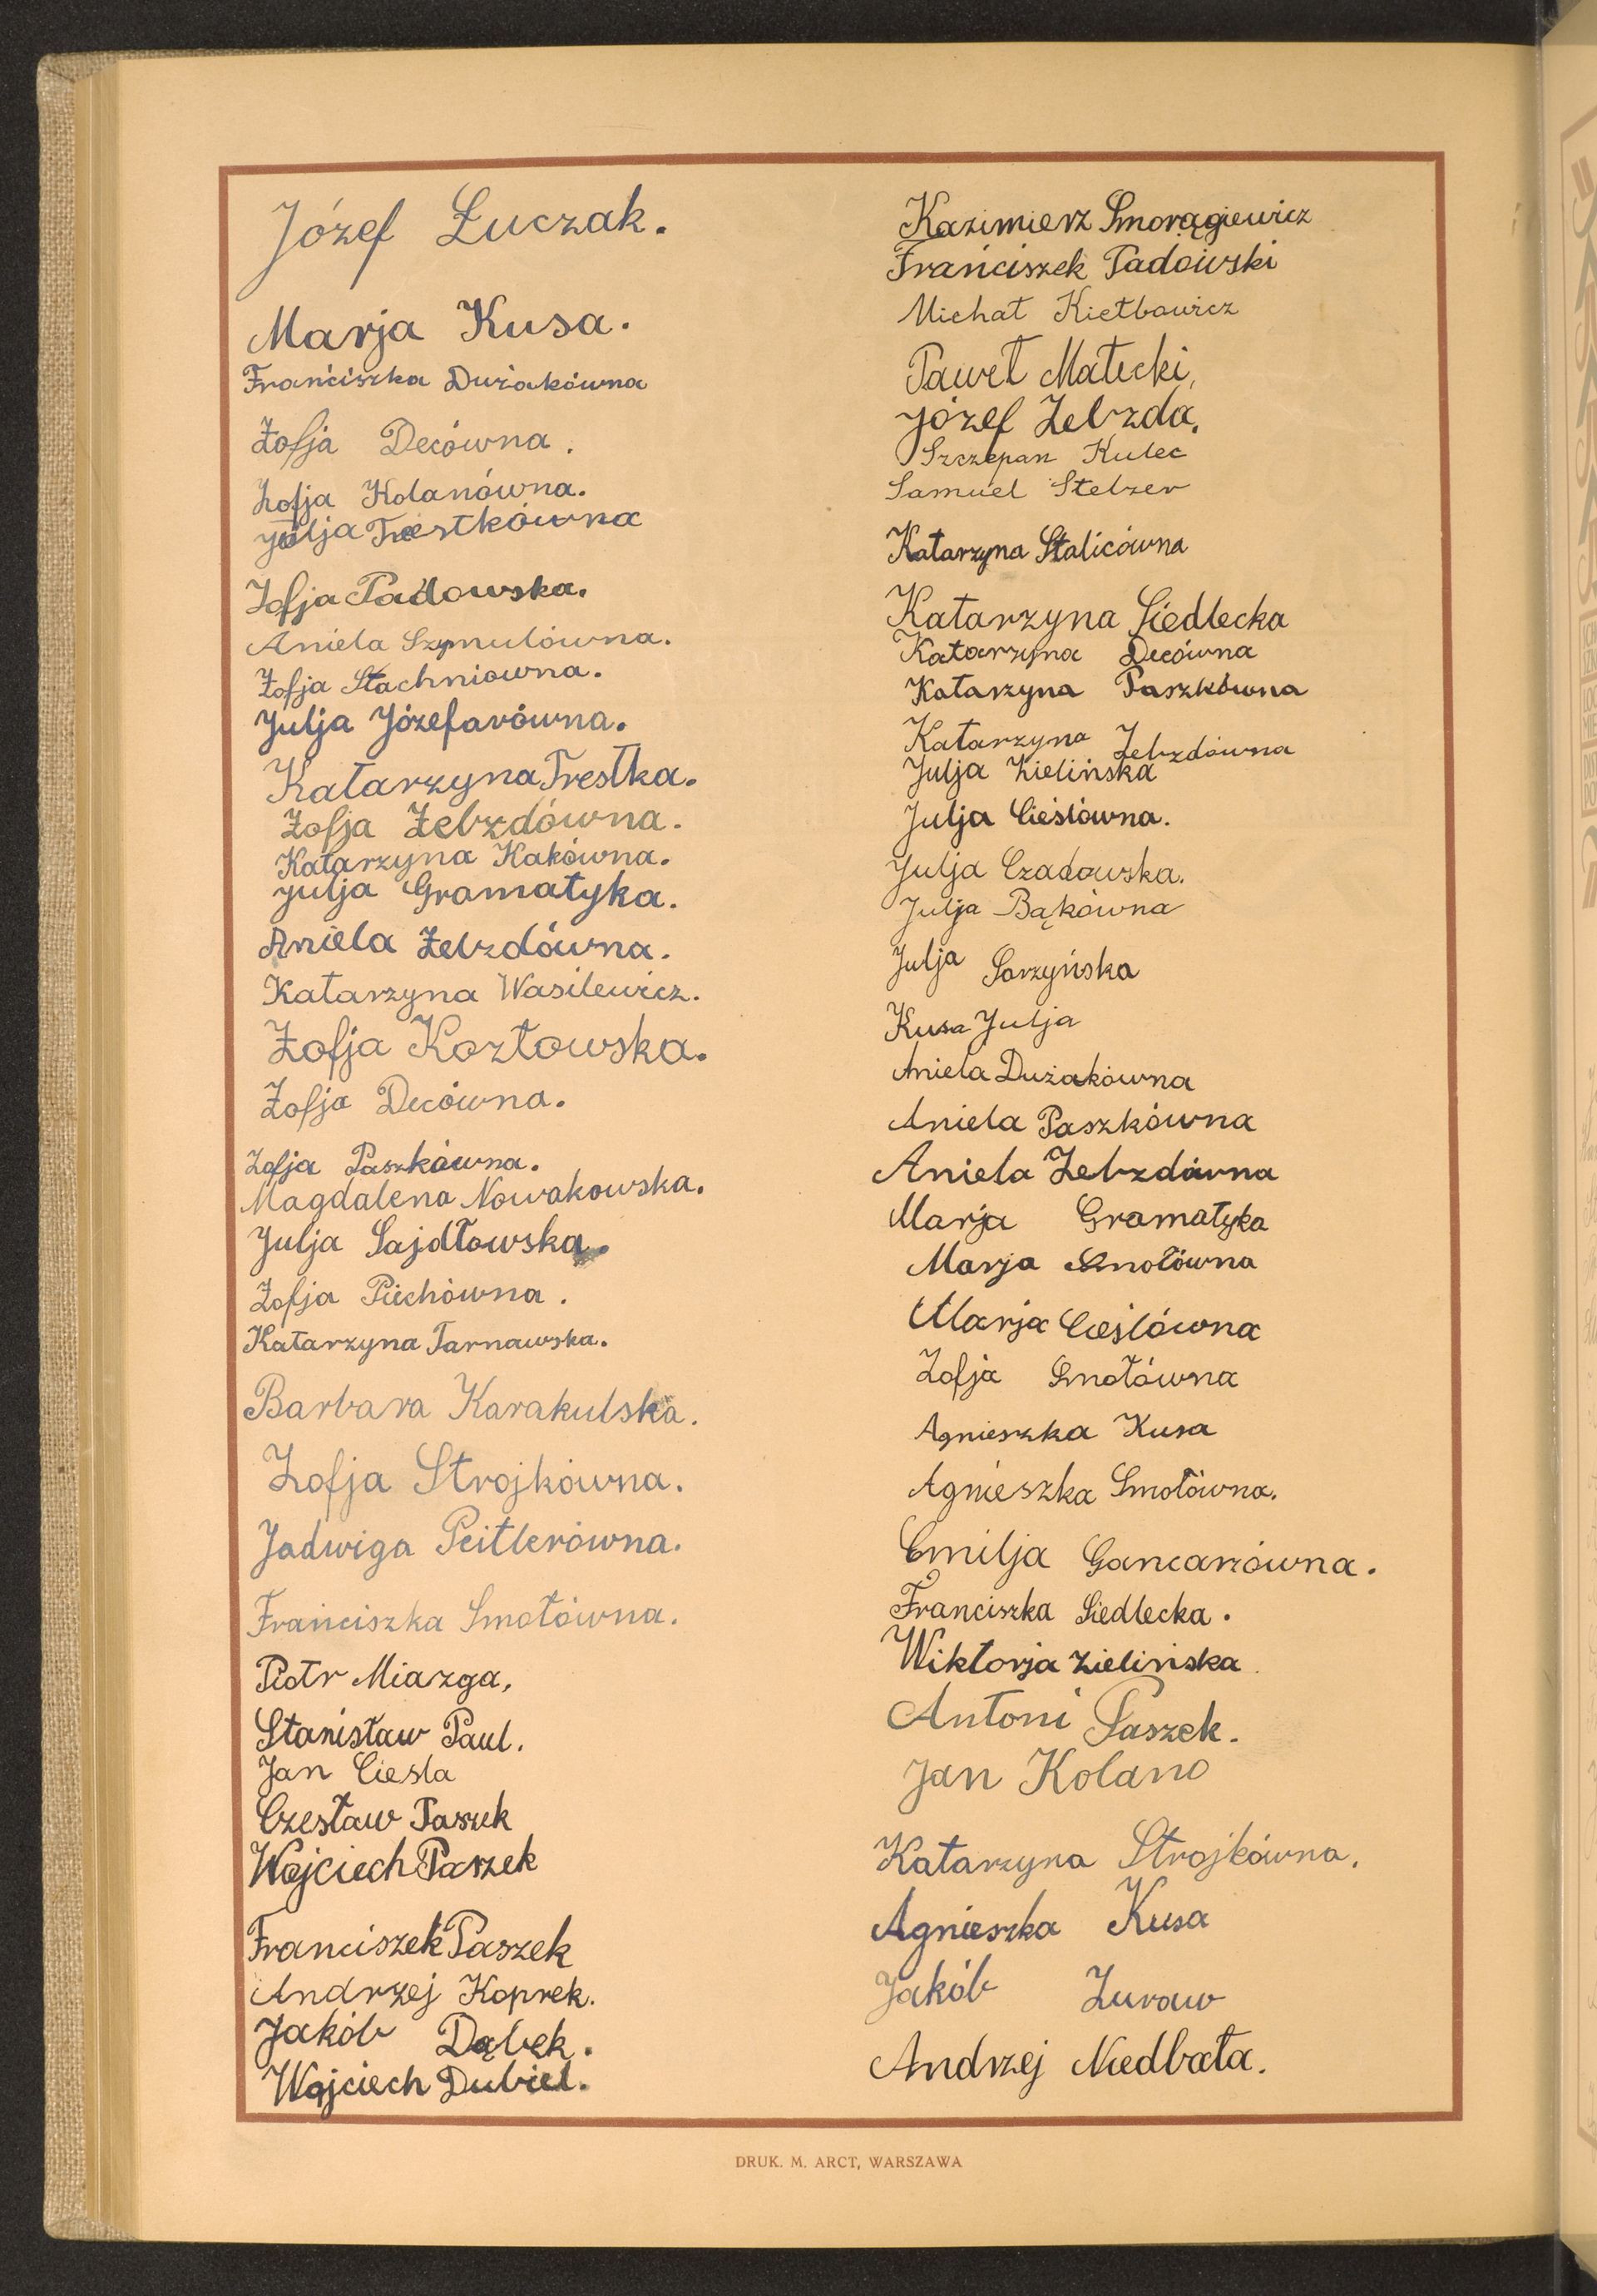 Józef Łuczak.
Marja Kusa.
Franciszka Dużakówna
Zofja Decówna.
Zofja Kolanówna.
Julja Trestkówna
Zofja Padowska.
Aniela Szymulówna.
Zofja Stachniowna.
Julja Józefarówna.
Katarzyna Trestka.
Zofja Żebzdówna.
Katarzyna Kakówna.
Julja Gramatyka.
Aniela Żebzdówna.
Katarzyna Wasilewicz.
Zofja Kozłowska.
Zofja Decówna.
Zofja Paszkówna.
Magdalena Nowakowska.
Julja Sajdłowska.
Zofja Piechówna.
Katarzyna Tarnawska.
Barbara Karakulska.
Zofja Strojkówna.
Jadwiga Peitlerówna.
Franciszka Smołówna.
Piotr Miazga,
Stanisław Paul.
Jan Ciesla
Czesław Paszek
Wojciech Paszek
Franciszek Paszek
Andrzej Koprek.
Jakób Dąbek.
Wojciech Dubiel.
Kazimierz Smorągiewicz
Franciszek Padowski
Michał Kiełbowicz
Paweł Małecki,
Józef Zebzda.
Szczepan Kulec
Samuel Stelzer
Katarzyna Stalicówna
Katarzyna Siedlecka
Katarzyna Decówna
Katarzyna Paszkówna
Katarzyna Zebzdówna
Julja Zielińska
Julja Cieślówna.
Julja Czadowska.
Julja Bąkówna
Julja Sarzyńska
Kusa Julja
Aniela Dużakówna
Aniela Paszkówna
Aniela Zebzdówna
Marja Gramatyka
Marja Smołówna
Marja Cieślówna
Zofja Smołówna
Agnieszka Kusa
Agnieszka Smołówna.
Emilja Gancarzówna.
Franciszka Siedlecka.
Wiktorja Zielińska
Antoni Paszek.
Jan Kolano
Katarzyna Strojkówna.
Agnieszka Kusa
Jakób Zuraw
Andrzej Niedbała.
DRUK. M. ARCT, WARSZAWA